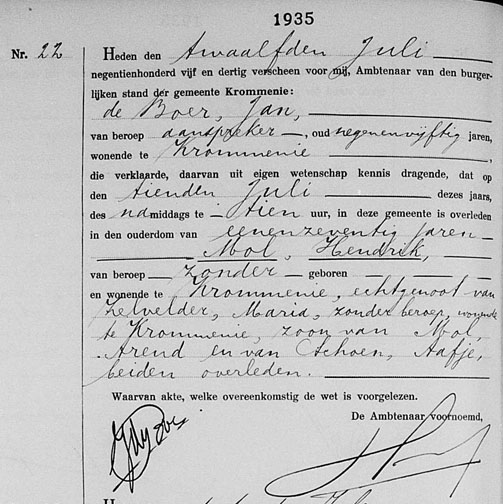 1935
Nr. 22 Heden den twaalfden Juli
negentienhonderd vijf en dertig verscheen voor mij, Ambtenaar van den burger-
lijken stand der gemeente Krommenie:
de Boer, Jan,
van beroep aanspreker, oud negenenvijftig jaren,
wonende te Krommenie
die verklaarde, daarvan uit eigen wetenschap kennis dragende, dat op
den tienden Juli dezes jaars,
des namiddags te tien uur, in deze gemeente is overleden
in den ouderdom van eenenzeventig jaren
Mol, Hendrik,
van beroep zonder geboren
en wonende te Krommenie, echtgenoot van
Zelvelder, Maria, zonder beroep, wonende
te Krommenie, zoon van Mol,
Arend en van Schoen, Aafje,
beiden overleden.
Waarvan akte, welke overeenkomstig de wet is voorgelezen.
De Ambtenaar voornoemd,